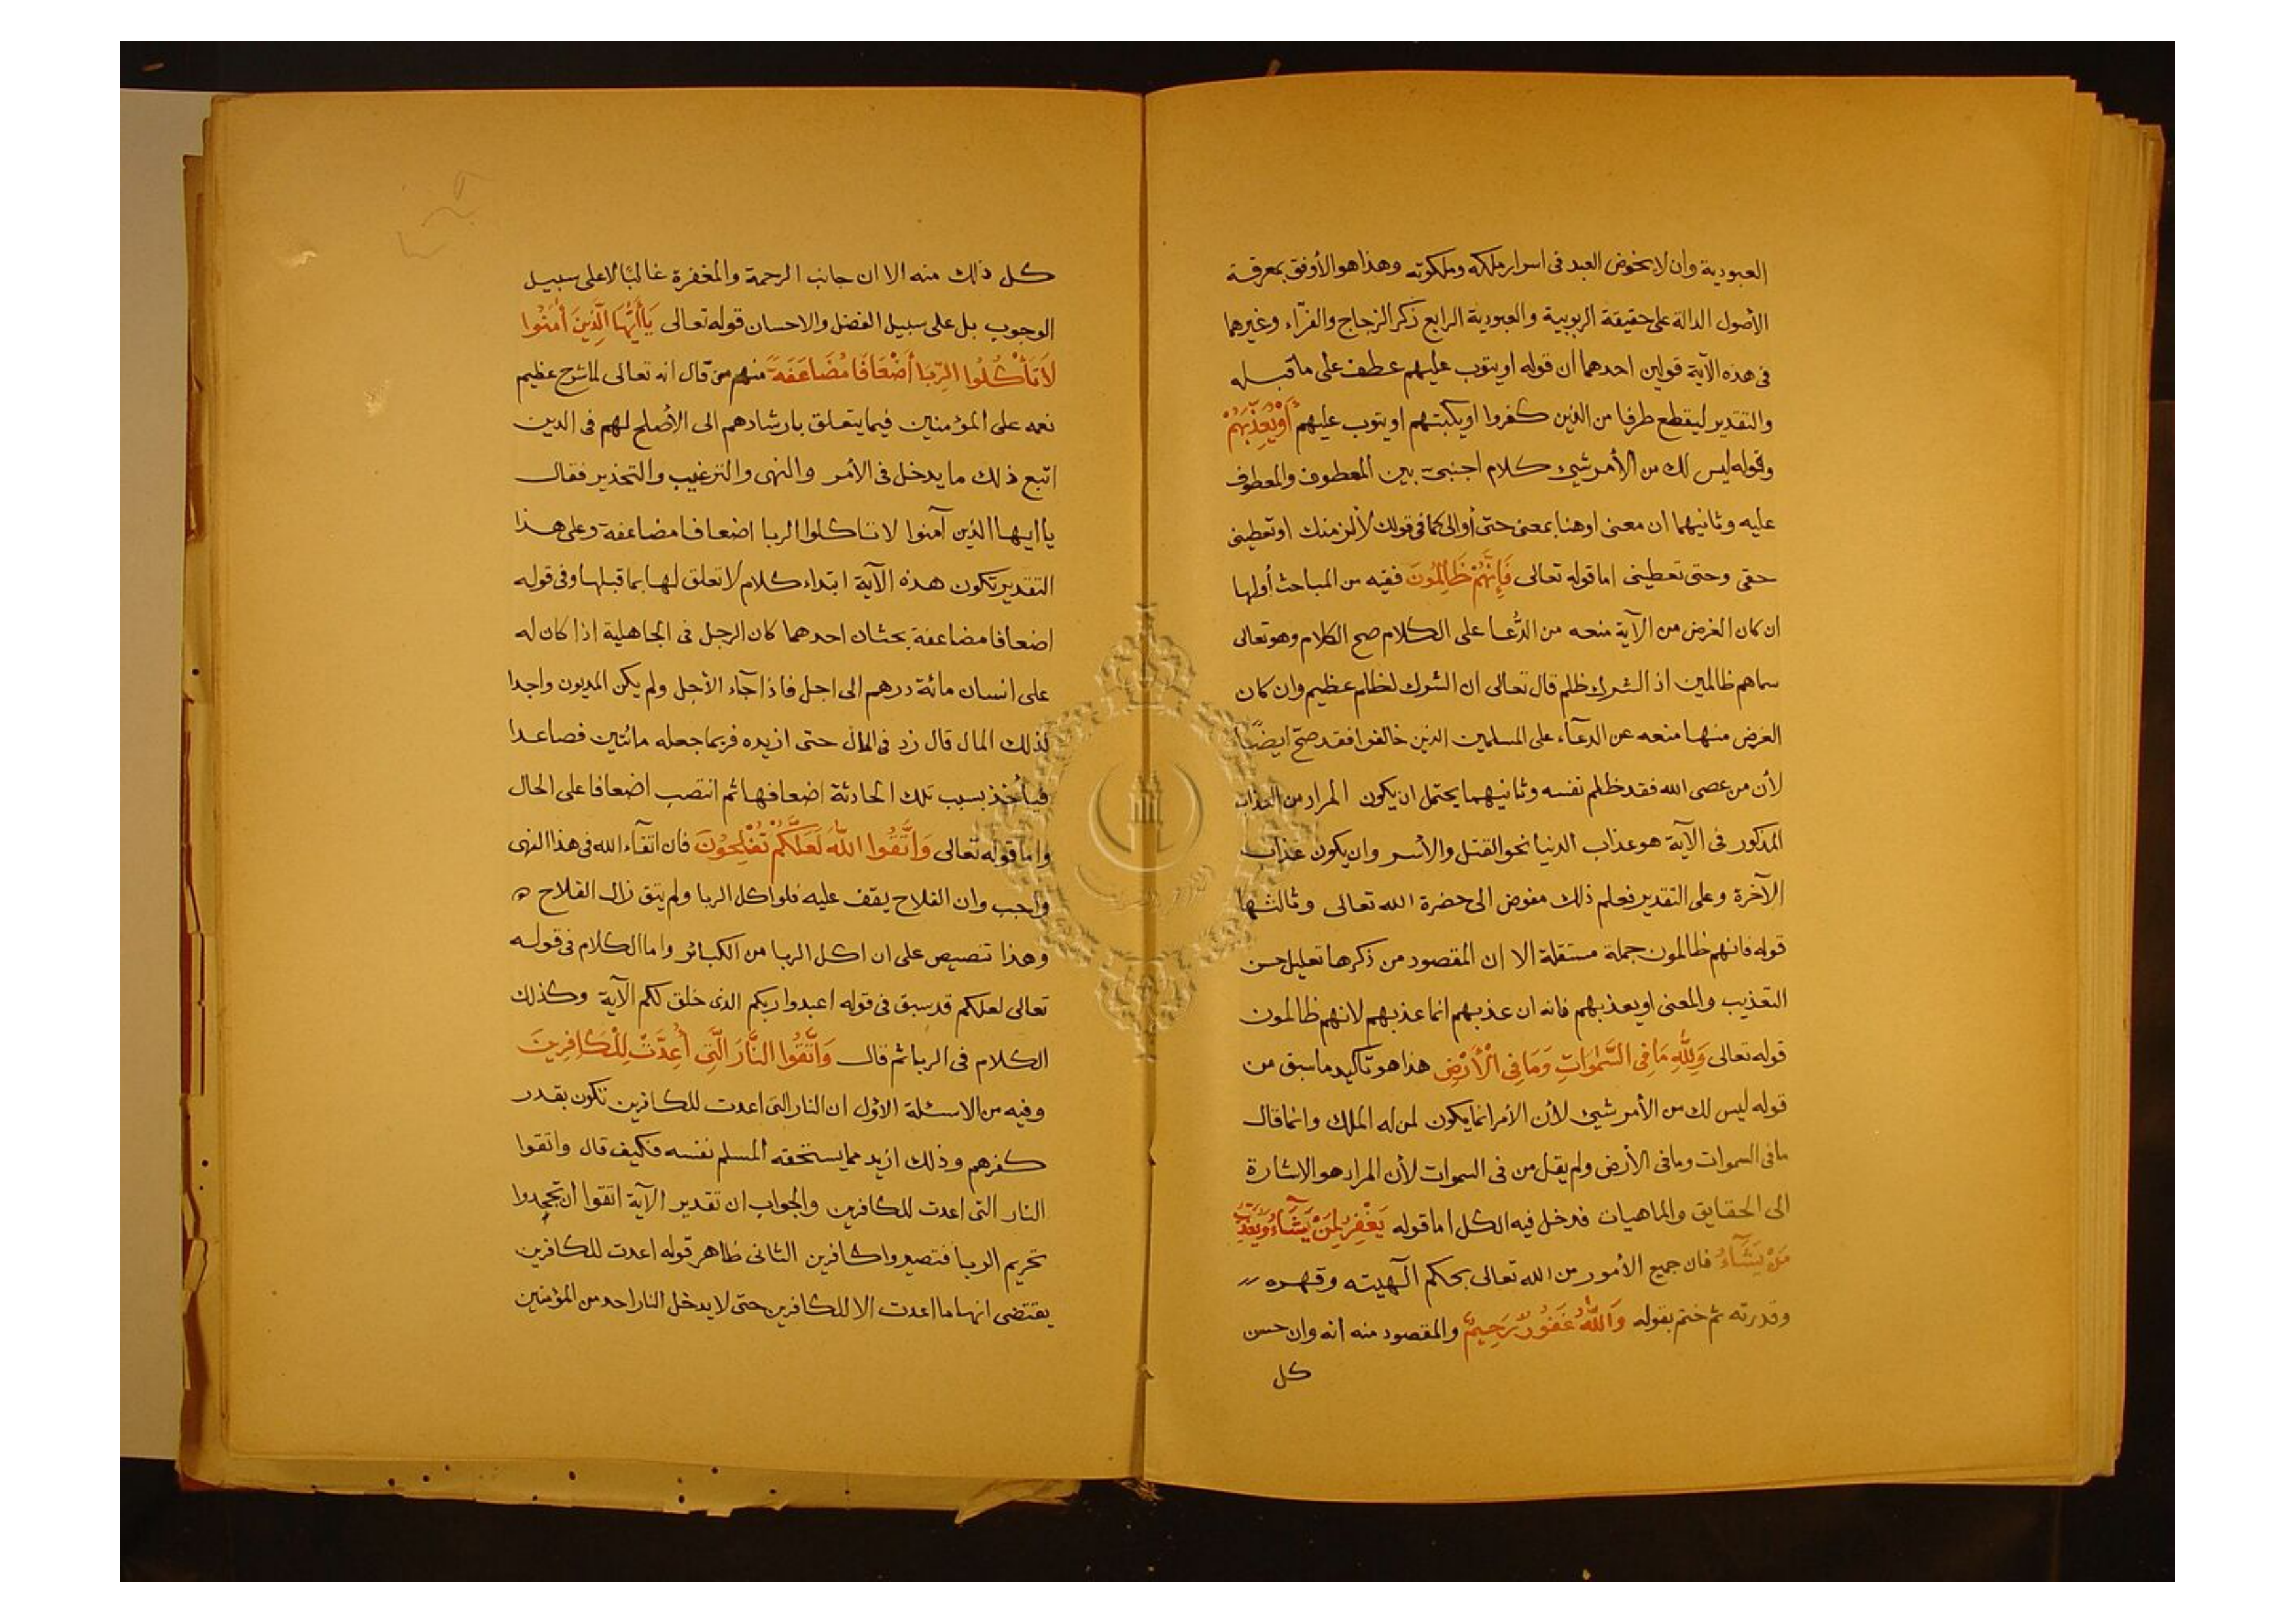 العبودية وان لا يخوض العبد فى اسرار ملكه وملكوته وهذا هو الأوفق بمعرفة
الأصول الدالة على حقيقة الربوبية والعبودية الرابع ذكر الزجاج والفرّاء وغيرهما
فى هذه الآية قولين احدهما ان قوله او يتوب عليهم عطف على ما قبله
والتقدير ليقطع طرفا من الذين كفروا او يكبتهم او يتوب عليهم أَوْ يُعَذِّبَهُمْ
وقوله ليس لك من الأمر شيئ كلام اجنبى بين المعطوف والمعطوف
عليه وثانيهما ان معنى او هنا بمعنى حتى أو الى كما فى قولك لألزمنك او تعطينى
حقى وحتى تعطينى اما قوله تعالى فَإِنَّهُمْ ظَالِمُونَ ففيه من المباحث أولها
ان كان الغرض من الآية منعه من الدُّعا على الكلام صح الكلام وهو تعالى
سماهم ظالمين اذ الشرك ظلم قال تعالى ان الشرك لظلم عظيم وان كان
الغرض منها منعه عن الدعآء على المسلمين الذين خالفوا فقد صحّ ايضًا
لأن من عصى الله فقد ظلم نفسه وثانيهما يحتمل ان يكون المراد من العذاب
المذكور فى الآية هو عذاب الدنيا نحو القتل والأسر وان يكون عذاب
الآخرة وعلى التقدير فعلم ذلك مفوض الى حضرة الله تعالى وثالثها
قوله فانهم ظالمون جملة مستقلة الا ان المقصود من ذكرها تعليل حسن
التعذيب والمعنى او يعذبهم فانه ان عذبهم انما عذبهم لانهم ظالمون
قوله تعالى وَلِلَّهِ مَا فِى السَّمٰوَاتِ وَمَا فِى الْأَرْضِ هذا هو تأكيد ما سبق من
قوله ليس لك من الأمر شيئ لأن الأمر انما يكون لمن له الملك وانما قال
ما فى السموات وما فى الأرض ولم يقل من فى السموات لأن المراد هو الاشارة
الى الحقايق والماهيات فدخل فيه الكل اما قوله يَغْفِرُ لِمَنْ يَشَآءُ وَيُعَذِّبُ
مَنْ يَشَآءُ فان جميع الأمور من الله تعالى بحكم الٓهيته وقهره
وقدرته ثم ختم بقوله وَاللّٰهُ غَفُورٌ رَحِيمٌ والمقصود منه أنه وان حسن
كل
كل ذلك منه الا ان جانب الرحمة والمغفرة غالبًا لا على سبيل
الوجوب بل على سبيل الفضل والاحسان قوله تعالى يَاأَيُّهَا الَّذِينَ أٰمَنُوا
لَا تَأْكُلُوا الرِّبَا أَضْعَافًا مُضَاعَفَةً منهم من قال انه تعالى لما شرح عظيم
نعمه على المؤمنين فيما يتعلق بارشادهم الى الأصلح لهم فى الدين
اتبع ذلك ما يدخل فى الأمر والنهى والترغيب والتحذير فقال
يا ايها الذين آمنوا لا تاكلوا الربا اضعافا مضاعفة وعلى هذا
التقدير تكون هذه الآية ابتداء كلام لا تعلق لها بما قبلها وفى قوله
اضعافا مضاعفة بحثان احدهما كان الرجل فى الجاهلية اذا كان له
على انسان مائة درهم الى اجل فاذا جآء الأجل ولم يكن المديون واجدا
لذلك المال قال زد فى المال حتى ازيده فربما جعله مائتين فصاعدا
فيأخذ بسبب تلك الحادثة اضعافها ثم انتصب اضعافا على الحال
واما قوله تعالى وَاتَّقُوا اللّٰهَ لَعَلَّكُمْ تُفْلِحُونَ فان اتقآء الله فى هذا النهى
واجب وان الفلاح يقف عليه فلو اكل الربا ولم يتق زال الفلاح ه
وهذا تنصيص على ان اكل الربا من الكبائر واما الكلام فى قوله
تعالى لعلكم قد سبق فى قوله اعبدوا ربكم الذى خلق لكم الآية وكذلك
الكلام فى الربا ثم قال وَاتَّقُوا النَّارَ الَّتِى أُعِدَّتْ لِلْكَافِرِينَ
وفيه من الاسئلة الأوّل ان النار التى اعدت للكافرين تكون بقدر
كفرهم وذلك ازيد مما يستحقه المسلم نفسه فكيف قال واتقوا
النار التى اعدت للكافرين والجواب ان تقدير الآية اتقوا ان تجحدوا
تحريم الربا فتصيروا كافرين الثانى ظاهر قوله اعدت للكافرين
يقتضى انها ما اعدت الا للكافرين حتى لا يدخل النار احد من المؤمنين